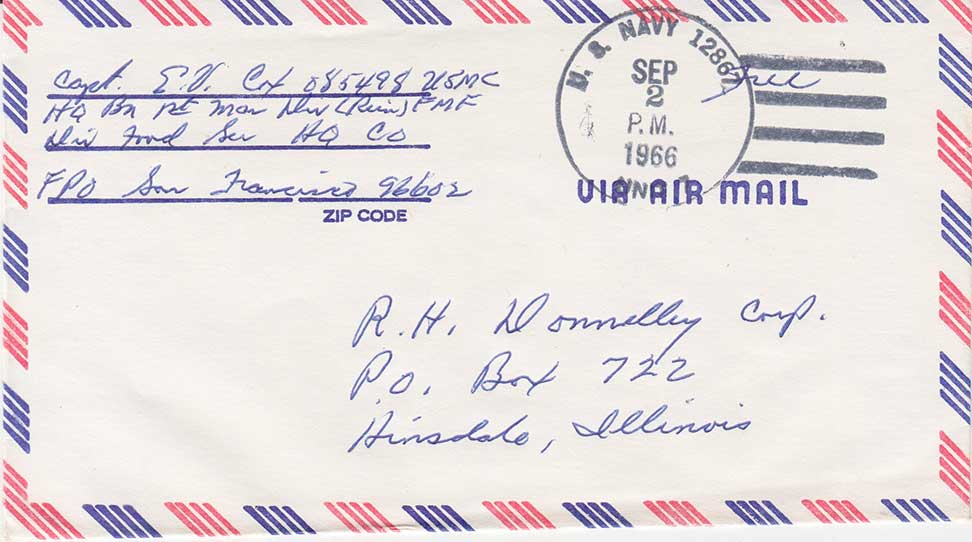 Capt. E.V. Cox 085498 USMC
HQ Bn 1st Mar Div (Rein) FMF
Div Food Ser HQ Co
FPO San Francisco 96602
ZIP CODE
U. S. NAVY 12867
SEP
2
P.M.
1966
UNIT
Free
VIA AIR MAIL
R.H. Donnelley Corp.
P.O. Box 722
Hinsdale, Illinois